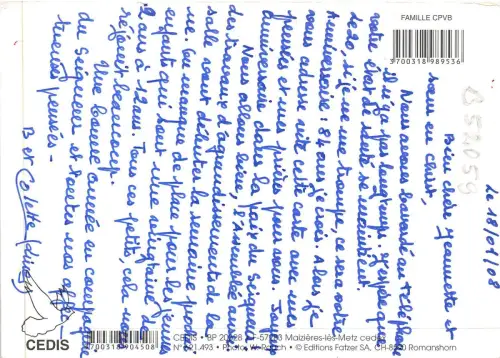 le 18/01/08
Bien chère Jeannette et
sœur en Christ,
Nous avons bavardé au téléphone
il n'y a pas longtemps. J'espère que
votre état de santé se maintient.
Le 20, si je ne me trompe, ce sera votre
Anniversaire : 84 ans je crois. Alors je
vous adresse vite cette carte avec mes
pensées et mes prières pour vous. Joyeux
Anniversaire dans la paix du Seigneur
Nous allons bien, l'Assemblée aussi
des travaux d'agrandissement de la
salle vont débuter la semaine prochai
ne. On manque de place pour les
enfants qui sont une vingtaine de
2 ans à 12 ans. Tous ces petits, cela nous
réjouit beaucoup.
Une bonne année en compagnie
du Seigneur et toutes nos affec
tueuses pensées.
B et Colette
FAMILLE CPVB
3700318989536
B52059
CEDIS
3700318904508
CEDIS • BP 20028 • F-57283 Maizières-les-Metz cedex
N° 691.493 • Photo: W. Rauch • © Editions Fatzer SA, CH-8590 Romanshorn